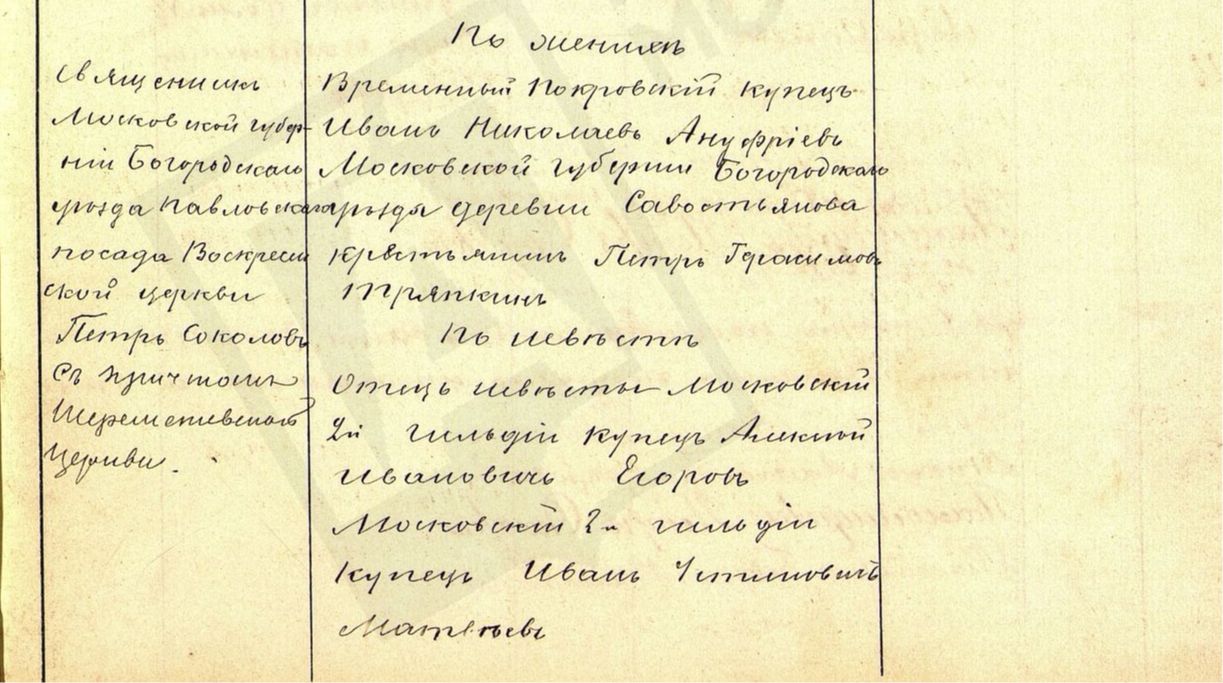 Священникъ
Московской губер-
ніи Богородскаго
уѣзда Павловскаго
посада Воскресен
ской церкви
Петръ Соколовъ
съ причтомъ
Шереметевской
Церкви.
По женихѣ
Временный Покровскій купецъ
Иванъ Николаевъ Ануфріевъ
Московской губерніи Богородскаго
уѣзда деревни Савостьянова
крестьянинъ Петръ Герасимовъ
Тряпкинъ
По невѣстѣ
Отецъ невѣсты Московскій
2й гильдіи купецъ Алексѣй
Ивановичъ Егоровъ
Московскій 2й гильдіи
Купецъ Иванъ Устиновичъ
Матвѣевъ